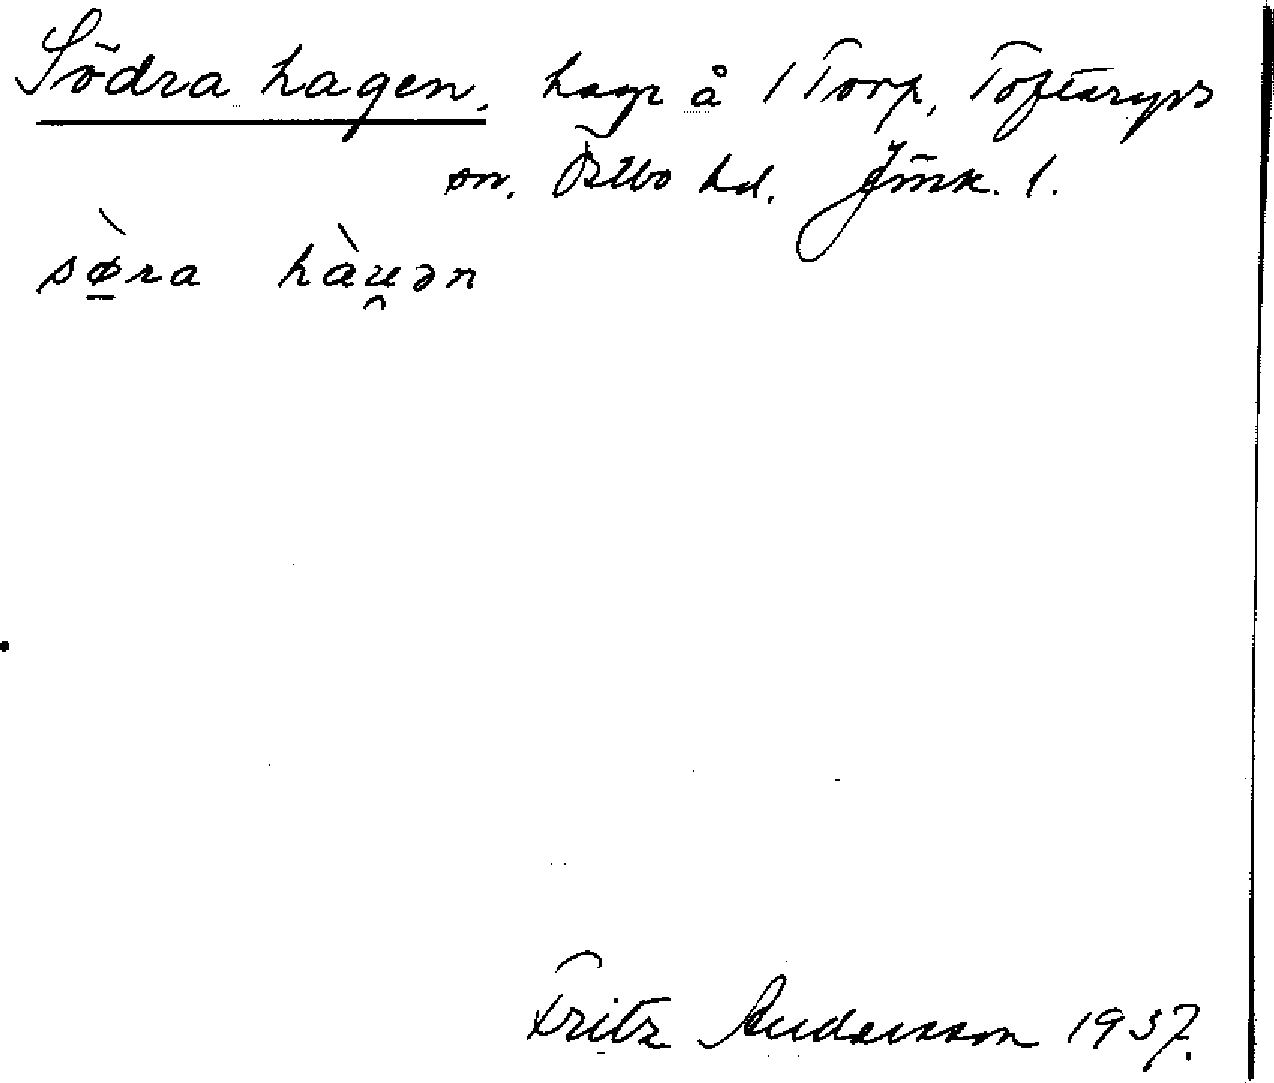 Södra hagen, hage å 1 Torp, Tofteryds
sn. Östbo hd. Jönk. l.
sø̱̀ra hàu̯ən
Fritz Andersson 1937.